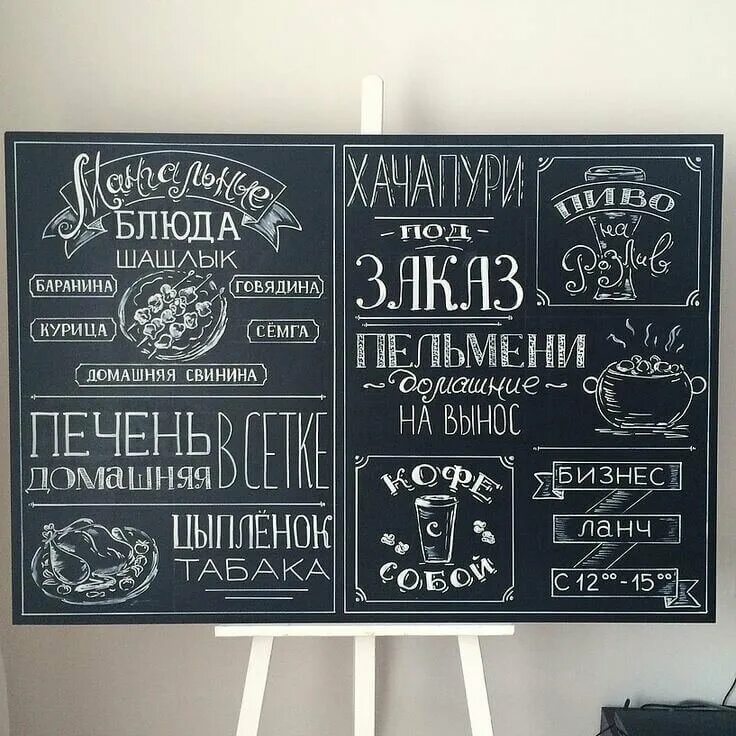 Мангальные
БЛЮДА
ШАШЛЫК
БАРАНИНА
ГОВЯДИНА
КУРИЦА
СЁМГА
ДОМАШНЯЯ СВИНИНА
ПЕЧЕНЬ
ДОМАШНЯЯ
В СЕТКЕ
ЦЫПЛЁНОК
ТАБАКА
ХАЧАПУРИ
- ПОД -
ЗАКАЗ
ПИВО
на
Розлив
ПЕЛЬМЕНИ
~ домашние ~
НА ВЫНОС
КОФЕ
С
СОБОЙ
БИЗНЕС
ЛАНЧ
С 12⁰⁰-15⁰⁰